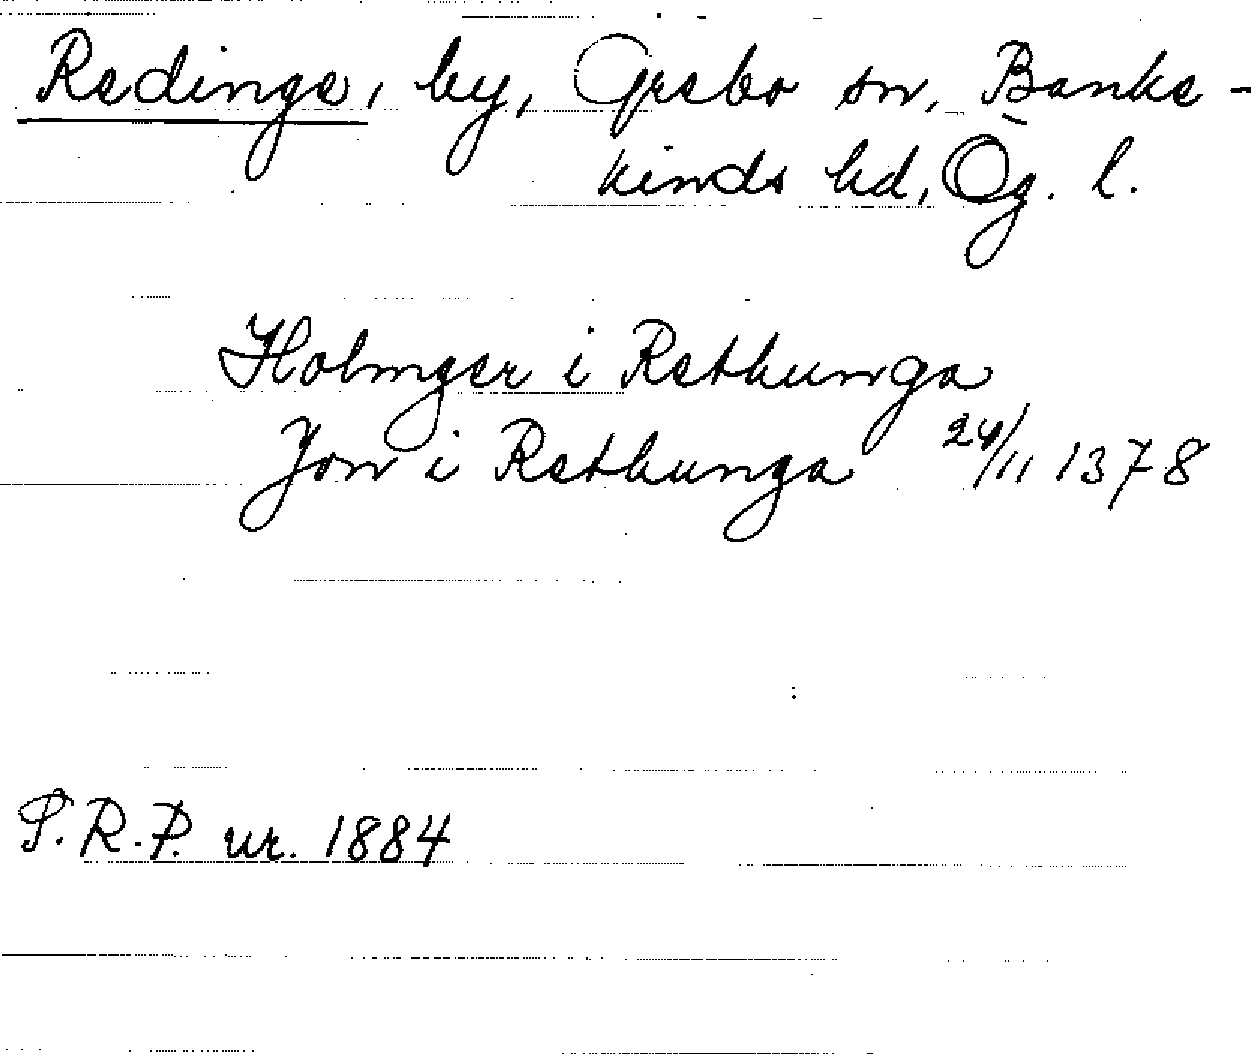 Redinge, by, Grebo sn, Banke-
kinds hd, Ög. l.
Holmger i Rethunga
Jon i Rethunga 24/11 1378
S.R.P. nr. 1884